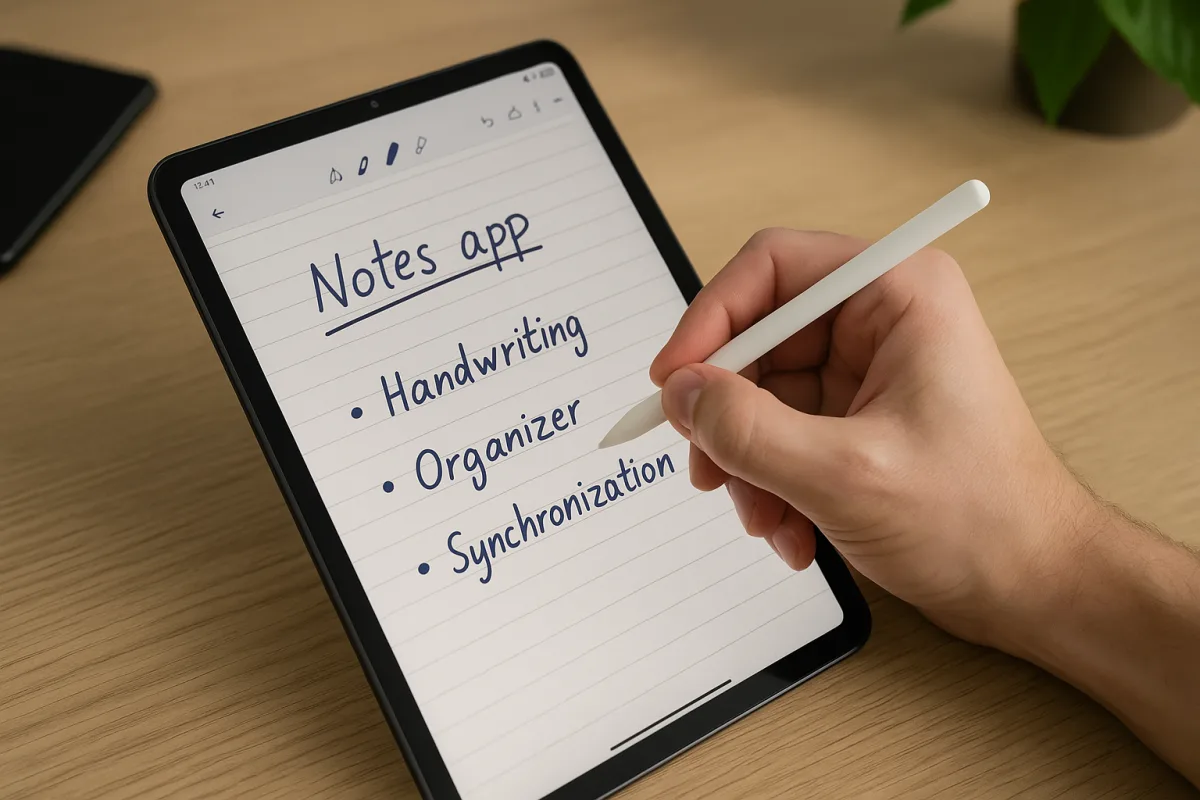 12:41
Notes app
• Handwriting
• Organizer
• Synchronization